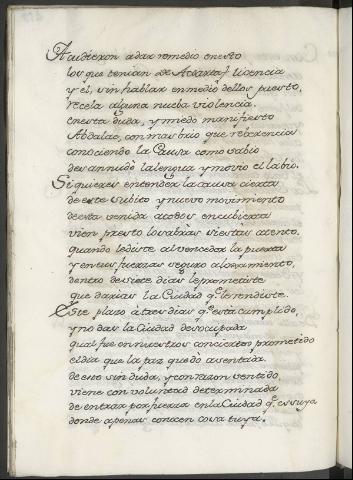 Acudieron a dar remedio en esto
los que tenian de Acdartaf licencia
y el, sin hablar en medio dellos puesto,
recela alguna nueba violencia.
en esta duda, y miedo manifiesto
Abdalac, con mas brio que reberencia
conociendo la Causa como sabio
desanudò la lengua y movio el labio.
Si quieres entender la causa cierta
de este subito y nuevo movimento
desta venida a todos encubierta
vien presto lo sabràs si estàs atento.
quando lediste al vencedor la puerta
y en tus fuerzas seguro alojamiento,
dentro de siete dias le prometiste
que darias la Ciudad q.e le rendiste.
Este plazo à tres dias q.e està cumplido,
y no das la Ciudad desocupada
qual fue en nuestros conciertos prometido
el dia que la paz quedò asentada.
de esto sin duda, y con razon sentido
viene con voluntad determinada
de entrar por fuerza en la Ciudad q.e es suya
donde apenas conocen cosa tuya.